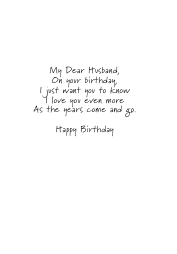 My Dear Husband,
On your birthday,
I just want you to know
I love you even more
As the years come and go.
Happy Birthday